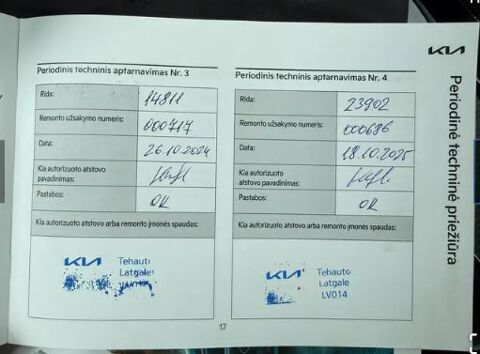 KIA
Periodinė techninė priežiūra
Periodinis techninis aptarnavimas Nr. 3
Rida: 14811
Remonto užsakymo numeris: 000717
Data: 26.10.2024
Kia autorizuoto atstovo pavadinimas:
Pastabos: OK
Kia autorizuoto atstovo arba remonto įmonės spaudas:
KIA Tehauto
Latgale
Periodinis techninis aptarnavimas Nr. 4
Rida: 23902
Remonto užsakymo numeris: 000686
Data: 18.10.2025
Kia autorizuoto atstovo pavadinimas:
Pastabos: OK
Kia autorizuoto atstovo arba remonto įmonės spaudas:
KIA Tehauto
Latgale
LV014
17